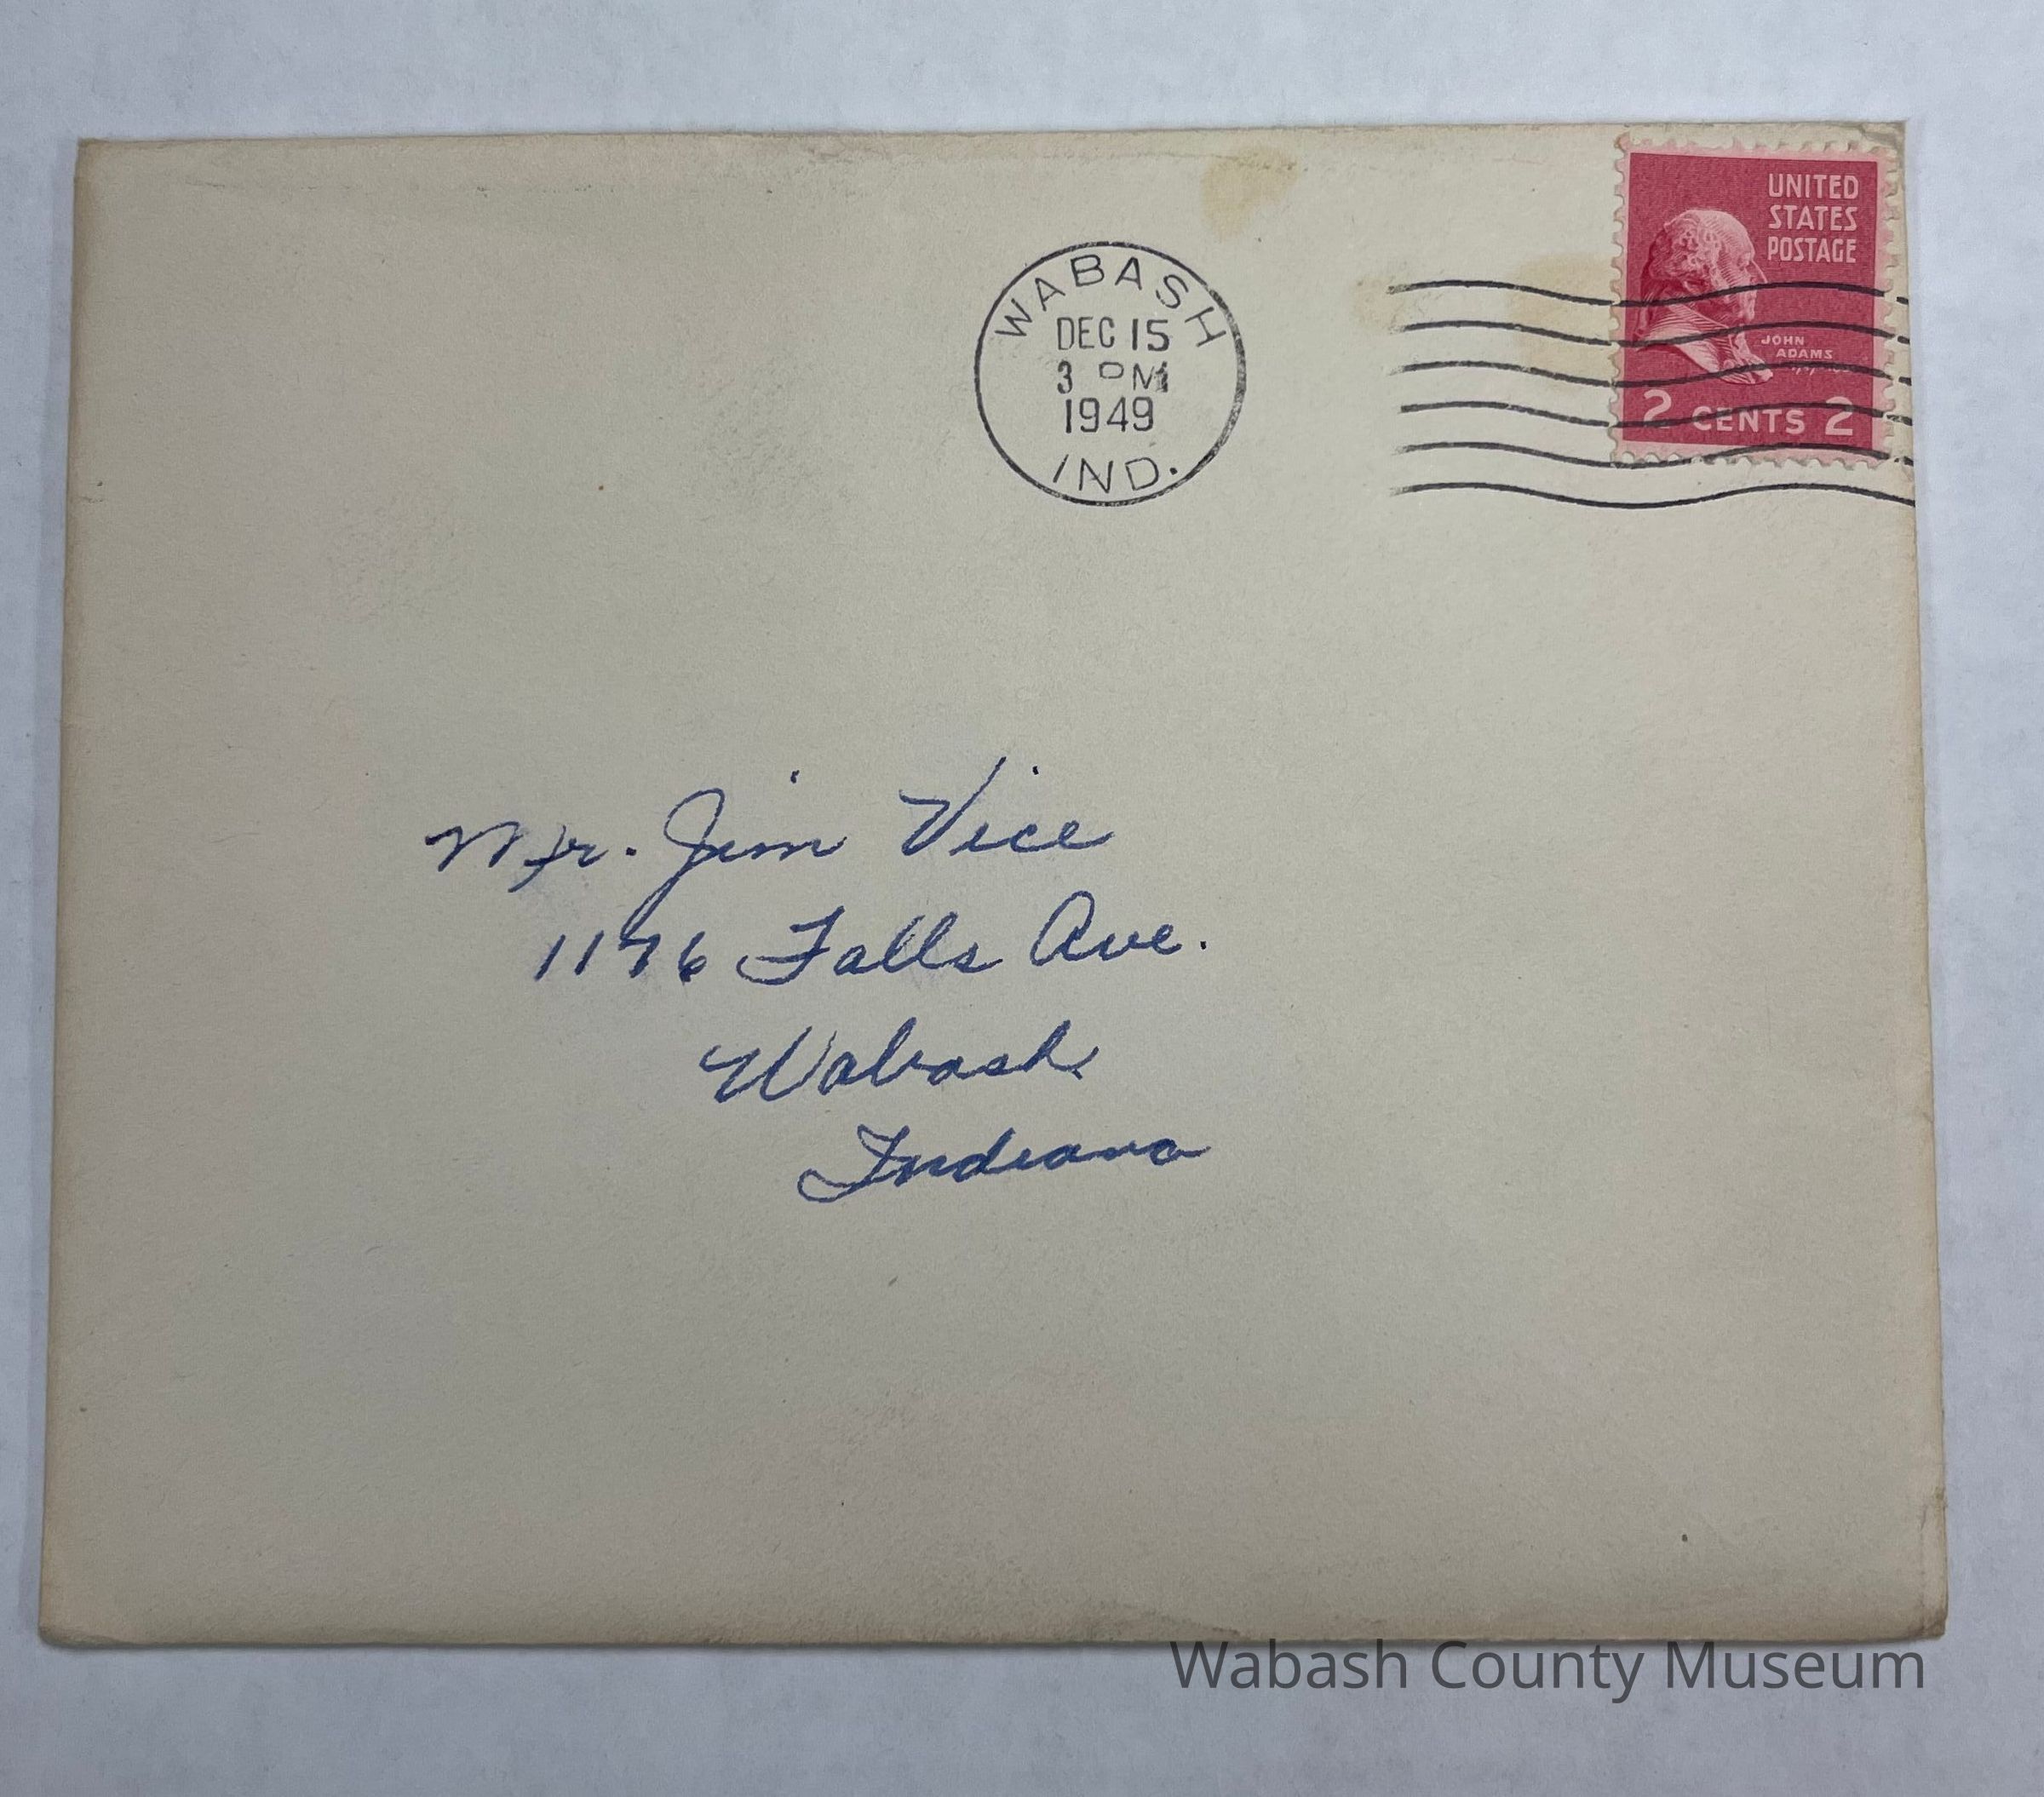 WABASH
DEC 15
3 PM
1949
IND.
UNITED
STATES
POSTAGE
JOHN
ADAMS
2 CENTS 2
Mr. Jim Vice
1176 Falls Ave.
Wabash,
Indiana
Wabash County Museum